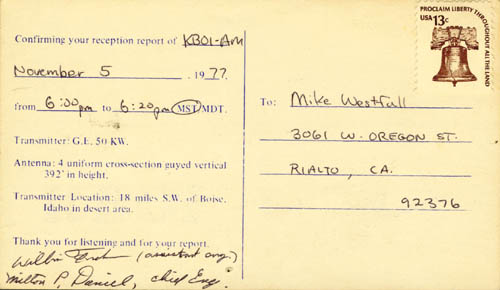 Confirming your reception report of KBOI-AM
November 5, 1977.
from 6:00pm to 6:20pm MST/MDT.
Transmitter: G.E. 50 KW.
Antenna: 4 uniform cross-section guyed vertical
392' in height.
Transmitter Location: 18 miles S.W. of Boise,
Idaho in desert area.
Thank you for listening and for your report.
(assistant eng.)
Milton P. Daniel, chief Eng.
PROCLAIM LIBERTY THROUGHOUT ALL THE LAND
USA 13c
To: Mike Westfall
3061 W. OREGON ST.
RIALTO, CA.
92376